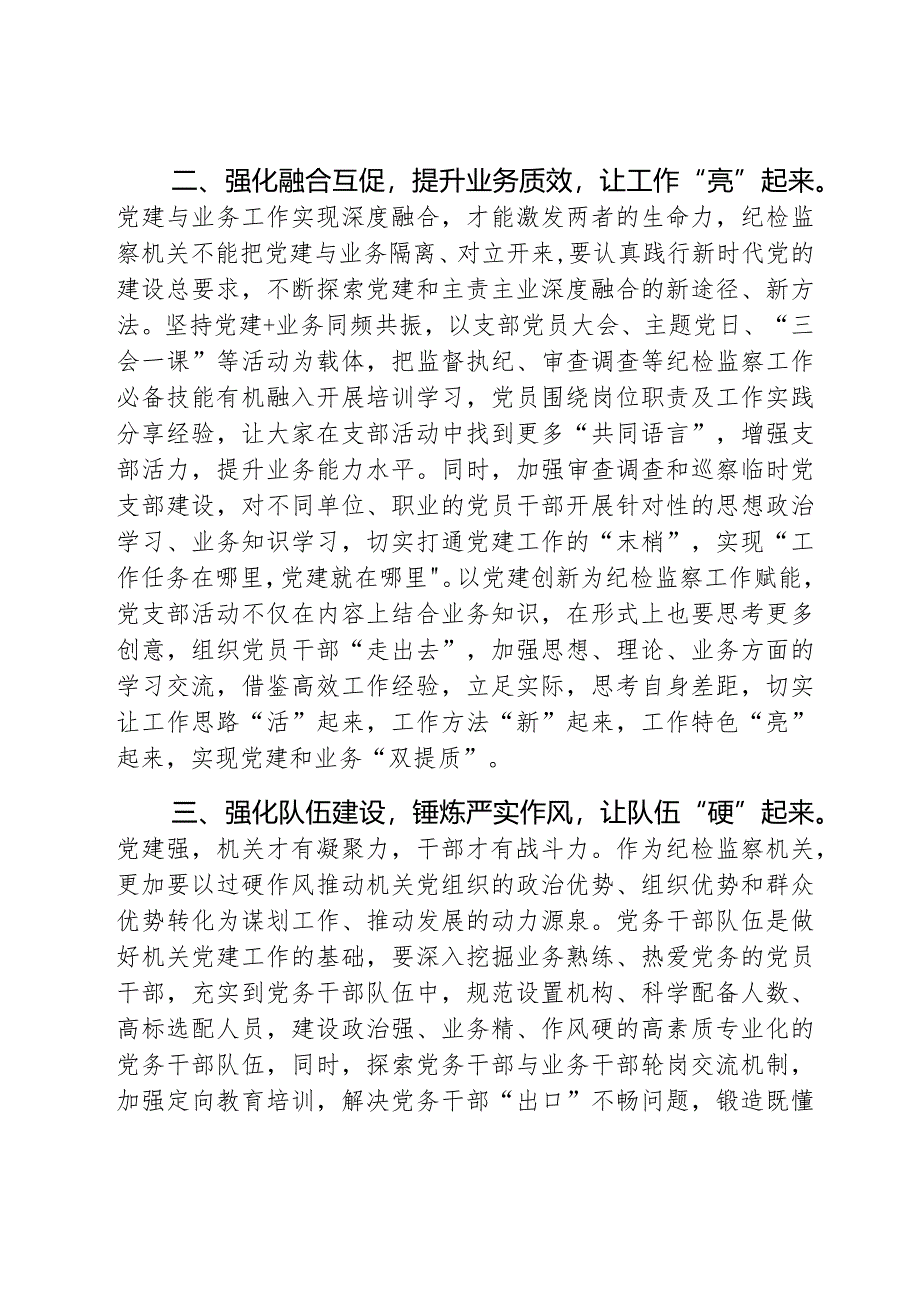 二、强化融合互促，提升业务质效，让工作“亮”起来。
党建与业务工作实现深度融合，才能激发两者的生命力，纪检监
察机关不能把党建与业务隔离、对立开来,要认真践行新时代党的
建设总要求，不断探索党建和主责主业深度融合的新途径、新方
法。坚持党建+业务同频共振，以支部党员大会、主题党日、“三
会一课”等活动为载体，把监督执纪、审查调查等纪检监察工作
必备技能有机融入开展培训学习，党员围绕岗位职责及工作实践
分享经验，让大家在支部活动中找到更多“共同语言”，增强支
部活力，提升业务能力水平。同时，加强审查调查和巡察临时党
支部建设，对不同单位、职业的党员干部开展针对性的思想政治
学习、业务知识学习，切实打通党建工作的“末梢”，实现“工
作任务在哪里,党建就在哪里"。以党建创新为纪检监察工作赋能，
党支部活动不仅在内容上结合业务知识，在形式上也要思考更多
创意，组织党员干部“走出去”，加强思想、理论、业务方面的
学习交流，借鉴高效工作经验，立足实际，思考自身差距，切实
让工作思路“活”起来，工作方法“新”起来，工作特色“亮”
起来，实现党建和业务“双提质”。
三、强化队伍建设，锤炼严实作风，让队伍“硬”起来。
党建强，机关才有凝聚力，干部才有战斗力。作为纪检监察机关，
更加要以过硬作风推动机关党组织的政治优势、组织优势和群众
优势转化为谋划工作、推动发展的动力源泉。党务干部队伍是做
好机关党建工作的基础，要深入挖掘业务熟练、热爱党务的党员
干部，充实到党务干部队伍中，规范设置机构、科学配备人数、
高标选配人员，建设政治强、业务精、作风硬的高素质专业化的
党务干部队伍，同时，探索党务干部与业务干部轮岗交流机制，
加强定向教育培训，解决党务干部“出口”不畅问题，锻造既懂